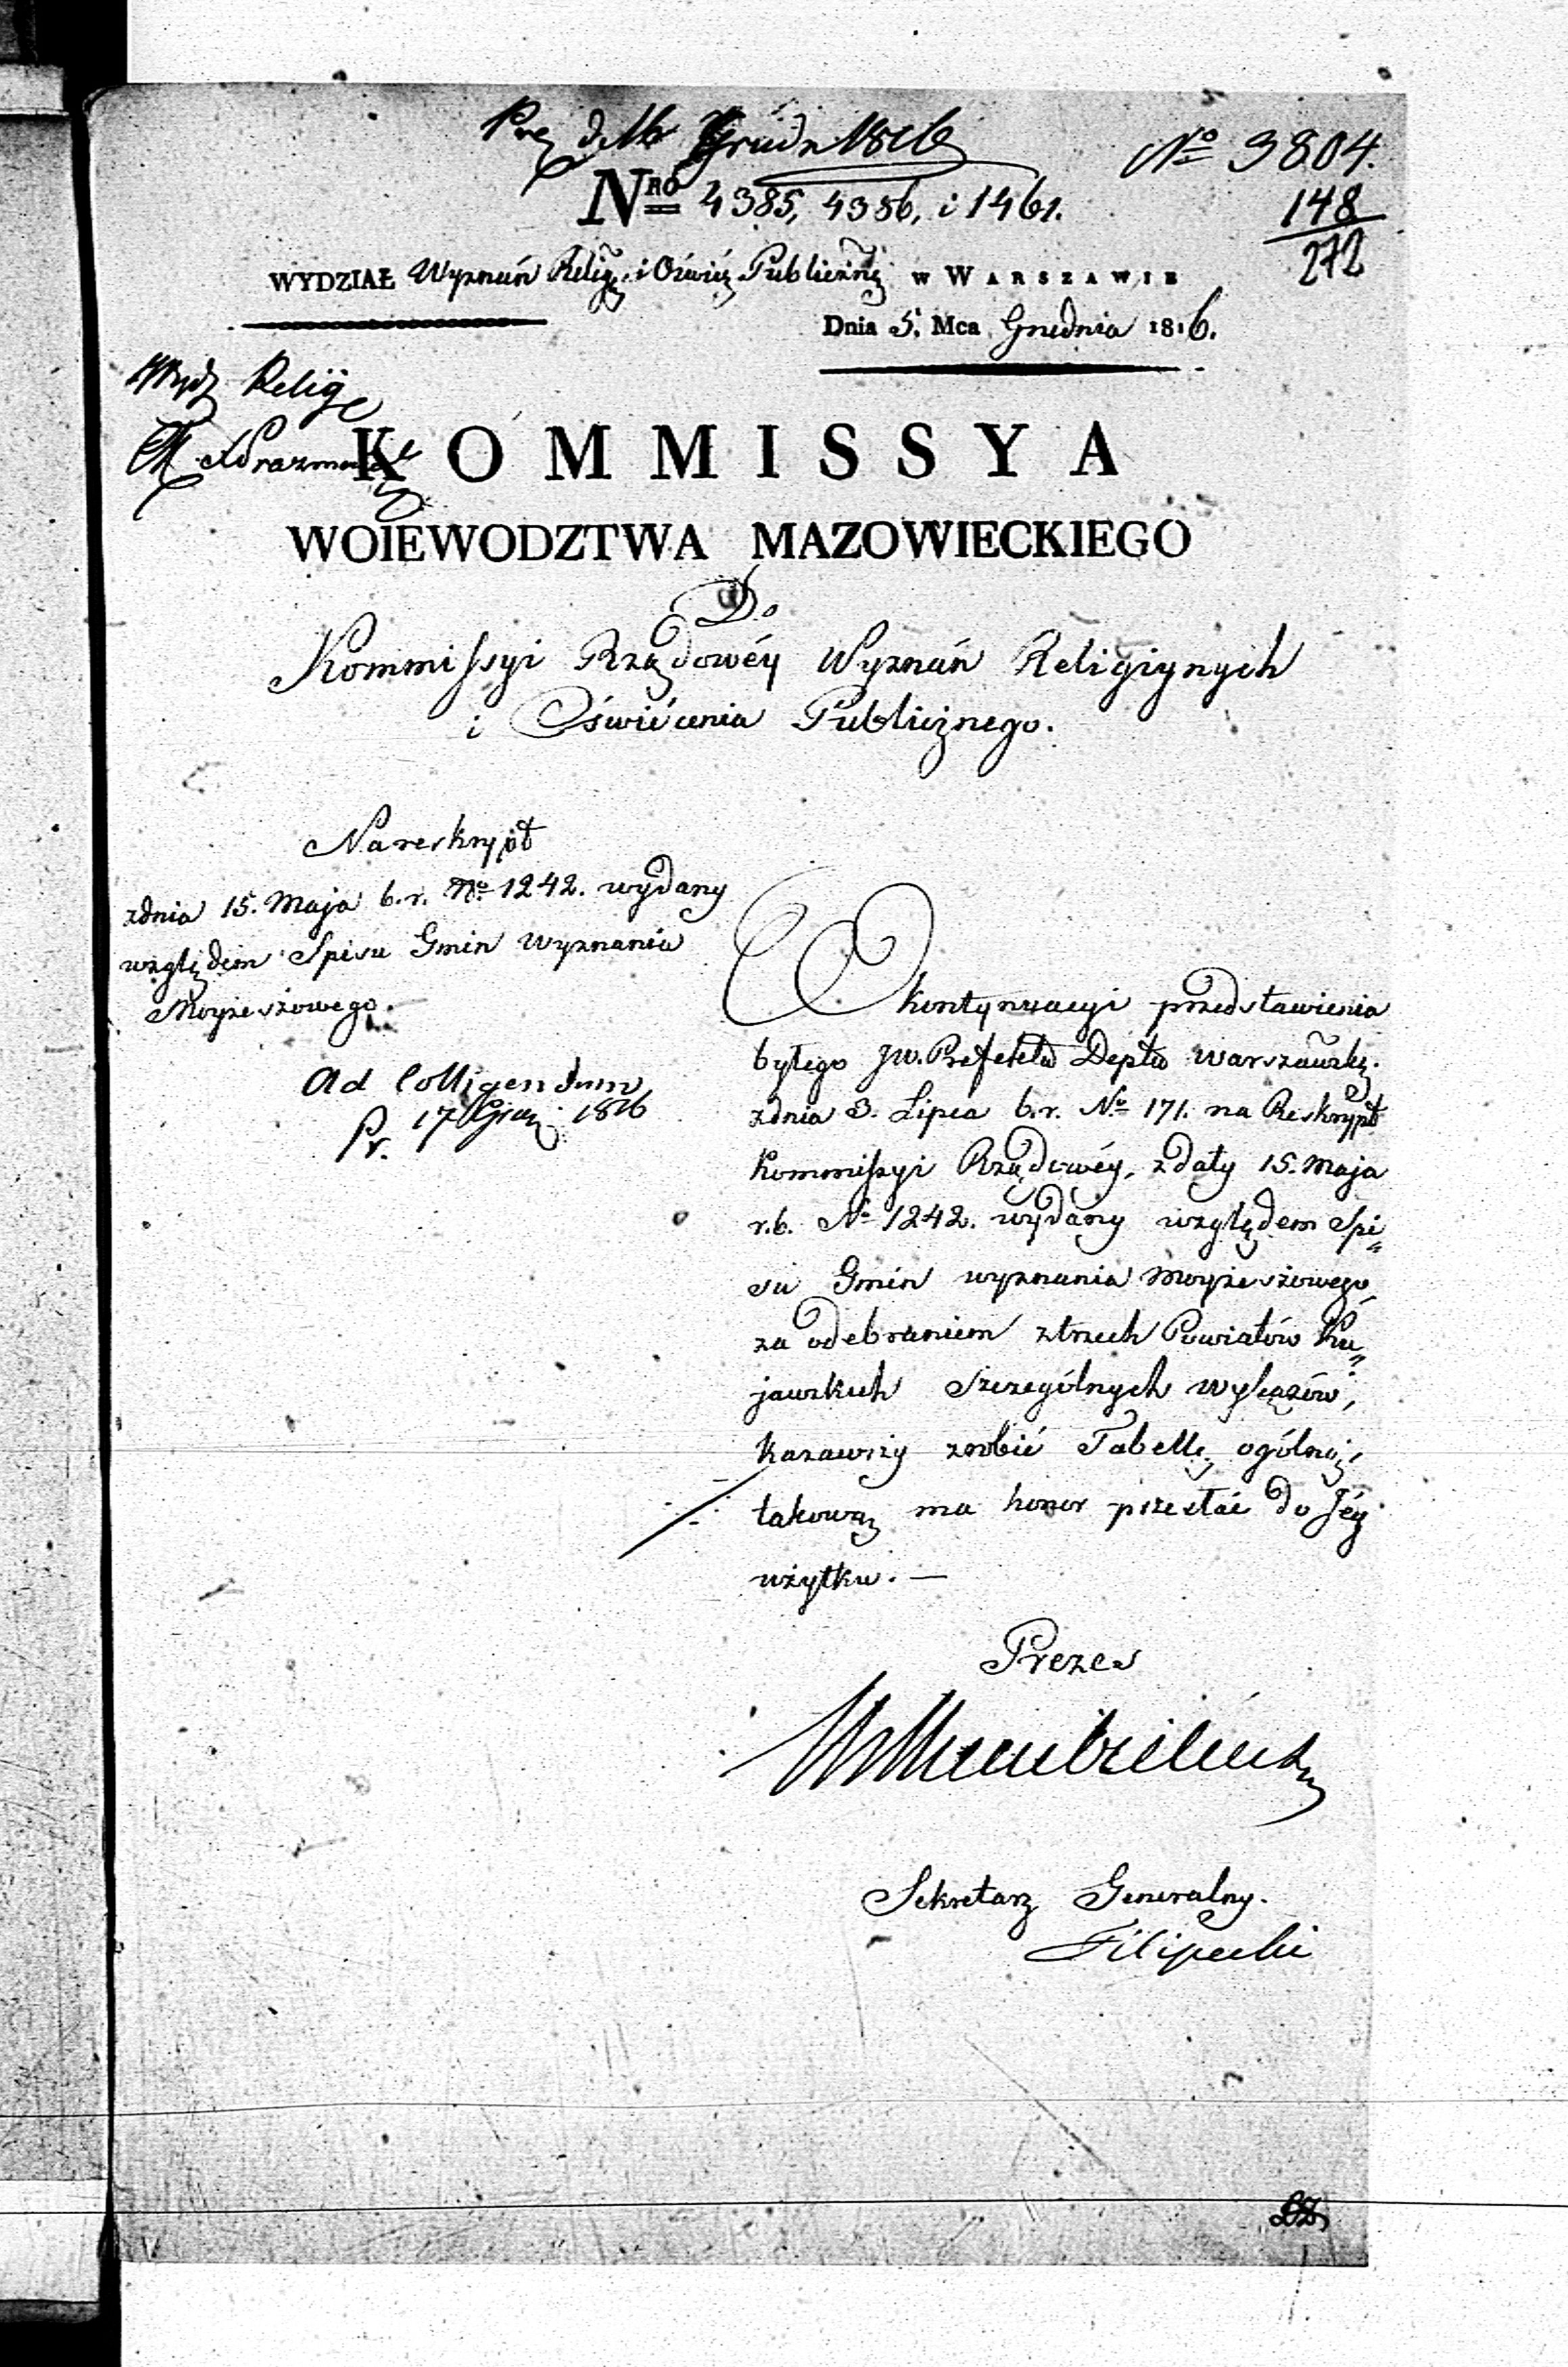 Prez d. 16 Grudn 1816
Nº 3804.
NRO 4385, 4386, i 1461.
148
272
WYDZIAŁ Wyznań Relig. i Oświec. Publiczné W WARSZAWIE
Dnia 5. Mca Grudnia 1816.
Wydz Relig
KOMMISSYA
WOIEWODZTWA MAZOWIECKIEGO
Do
Kommissyi Rządowéy Wyznań Religiynych
i Oświécenia Publicznego.
Na reskrypt
zdnia 15. Maja b. r. No 1242. wydany
względem Spisu Gmin Wyznania
Moyżeszowego.
Ad Colligendum
Pr. 17 Gru 1816
W kontynuacyi przedstawienia
byłego JW. Prefekta Depta Warszawsk.
zdnia 3. Lipca b. r. No 171. na Reskrypt
Kommissyi Rządowéy, z daty 15. Maja
r. b. No 1242. wydany względem Spi„
su Gmin wyznania Moyżeszowego,
za odebraniem ztrzech Powiatów Ku„
jawskich szczególnych wykazów,
kazawszy zrobić Tabellę ogólną,
takową ma honor przesłać do Jéy
użytku. —
Prezes
Sekretarz Generalny.
Filipecki